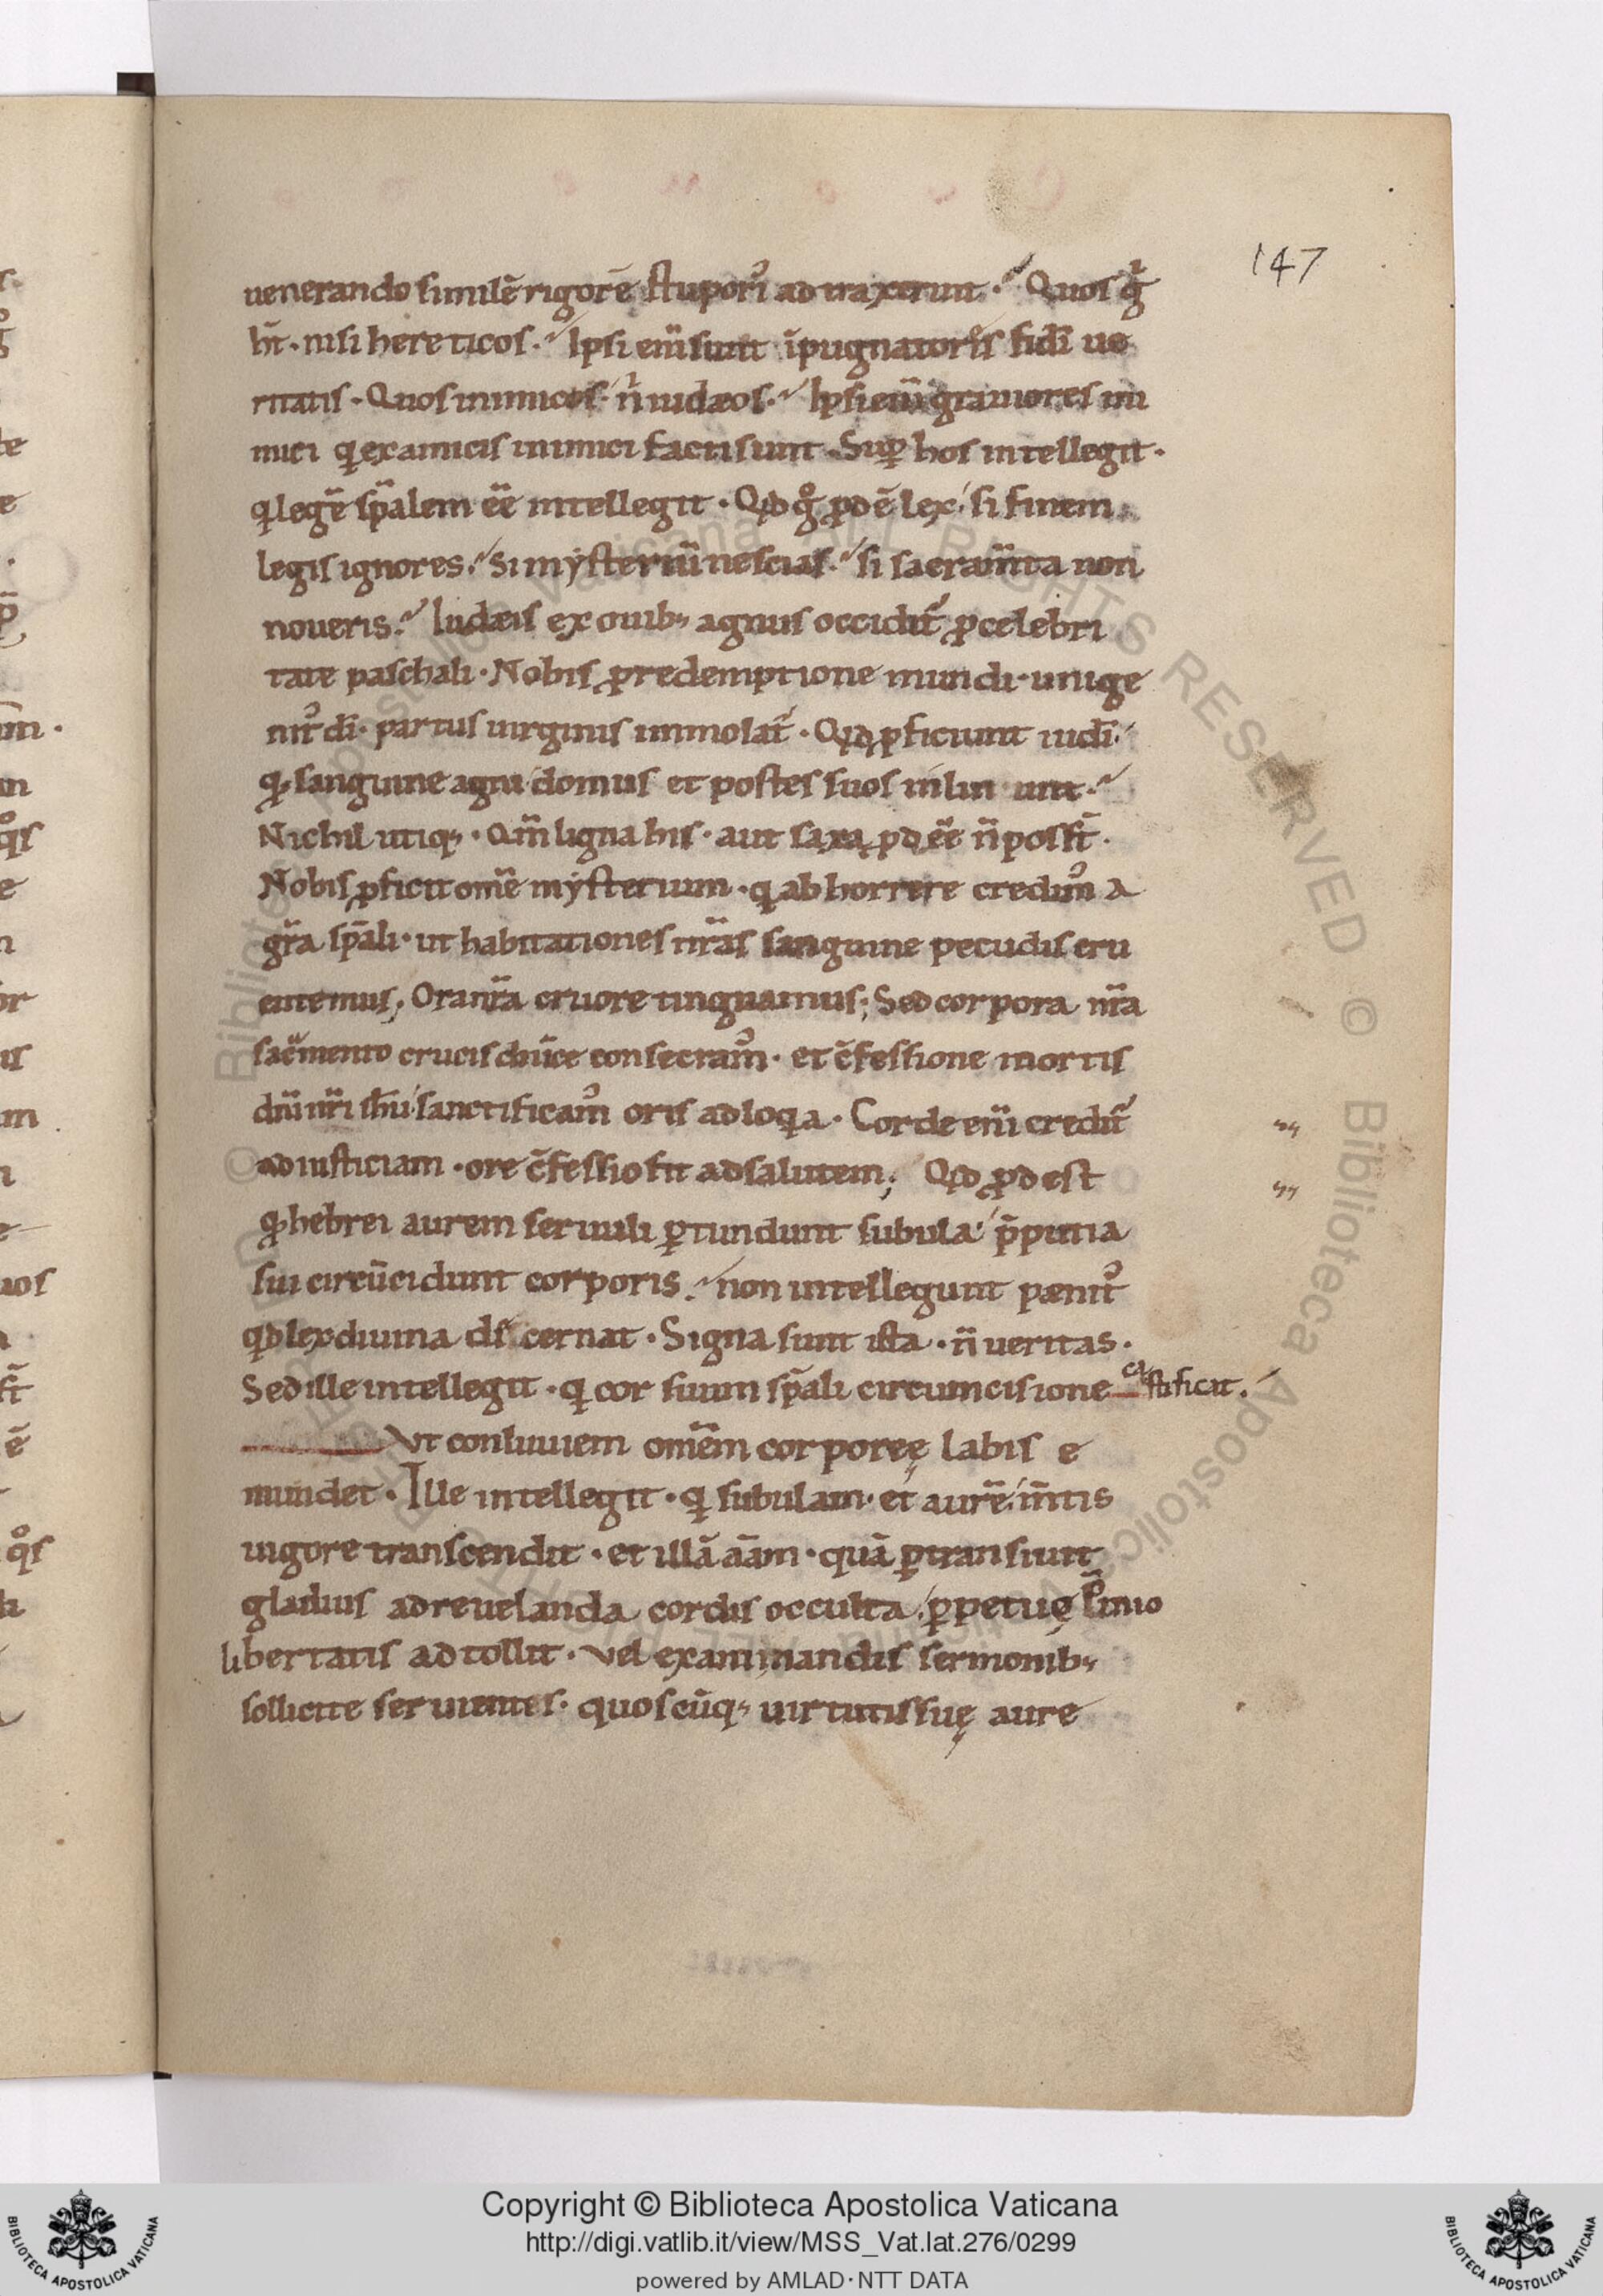 147
uenerando similē rigorē stuporı᷒ adtraxerunt. Quos gͥ
hn̄t. nisi hereticos. Ipsi eni̅ sunt īpugnatores fidei̅ ue
ritatis. Quos inimicos. n̄ iudæos. Ipsi eni̅ grauiores ini
mici q̇ ex amicis inimici facti sunt. Suꝑ hos intellegit.
q̇ legē sp̄alem ēē intellegit. Qͥd gͦ ꝓdē lex, si finem
legis ignores. si mysteriū nescias. si sacram̄ta non
noueris. Iudæis ex ouib; agnus occidit᷑ ꝓ celebri
tate paschali. Nobis ꝓ redemptione mundi. unige
nit᷒ di̅. partus uirginis immolat᷑. Qͥd ꝓficiunt iudi̅
qͦ sanguine agni domus et postes suos inlin unt.
Nichil utiq;. Qm̄ ligna his. aut saxa ꝓdēē n̄ poss̄t.
Nobis ꝓficit omē mysterium. q̇ abhorrere credim᷒ a
gr̄a sp̄ali. ut habitationes nr̄as sanguine pecudis cru
entemus; Ora nr̄a cruore tinguamus; Sed corpora nr̄a
sacm̄ento crucis diuīce consecram᷒. et c̄fessione mortis
dn̄i nr̄i ih̄u sanctificam᷒ oris adloq̇a. Corde eni̅ credit᷑
ad iusticiam. ore c̄fessio fit ad salutem; Qͥd ꝓdest
qͦ hebrei aurem seruuli ꝑtundunt subula, p̄putia
sui circūcidunt corporis. non intellegunt pænit᷒
qͥd lex diuina dis cernat. Signa sunt ista. n̄ ueritas.
Sed ille intellegit. q̇ cor suum sp̄ali circumcisione castificat.
Vt conluuiem omēm corporeę labis e
mundet. Ille intellegit. q̇ subulam. et aurē, m̄tis
uigore transcendit. et illā āam. quā ꝑtransiuit
gladius ad reuelanda cordis occulta, ꝑpetuę p̄mio
libertatis adtollit. vel examinandis sermonib;
sollicite seruientes. quoscūq; uirtutis suę aure
Copyright © Biblioteca Apostolica Vaticana
http://digi.vatlib.it/view/MSS_Vat.lat.276/0299
powered by AMLAD·NTT DATA
BIBLIOTECA APOSTOLICA VATICANA
BIBLIOTECA APOSTOLICA VATICANA